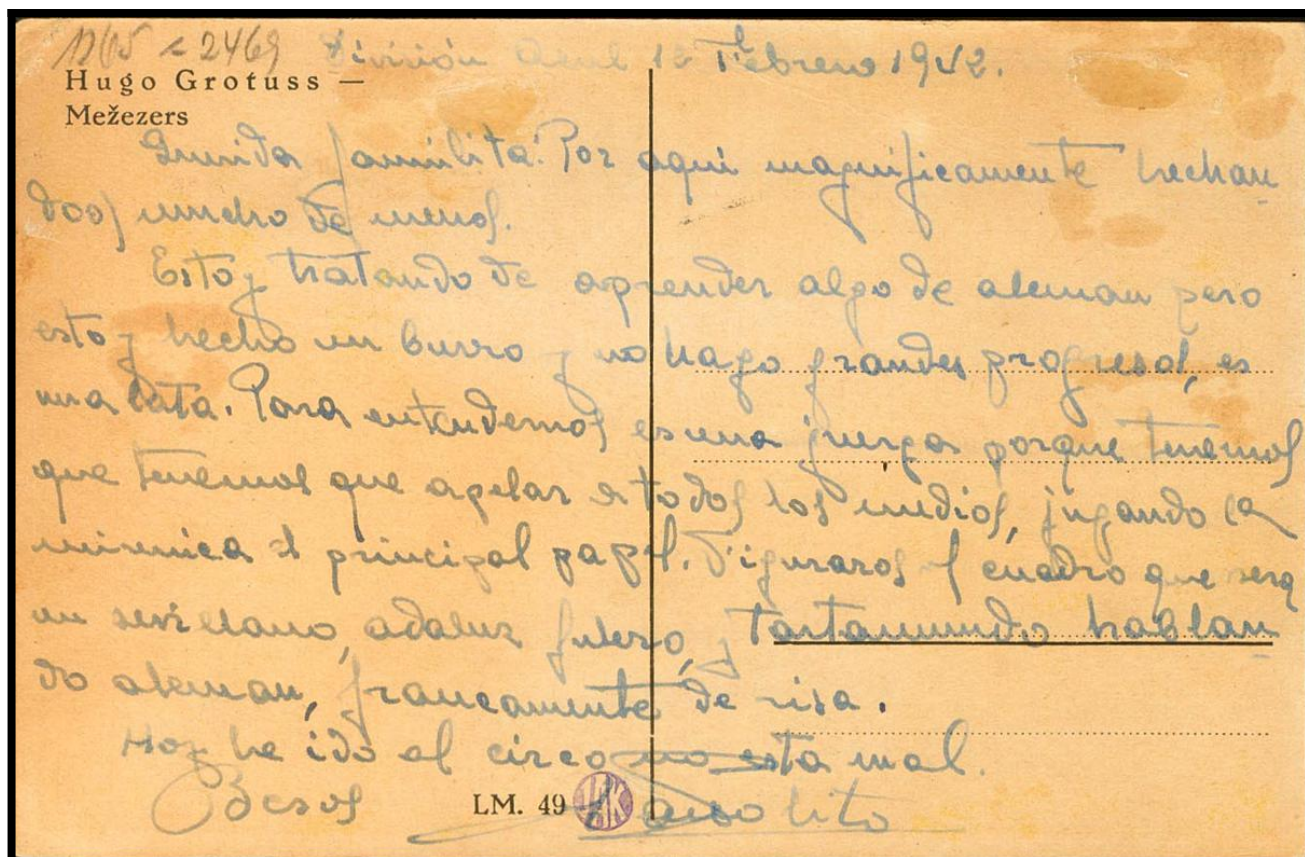 1265 2469 División Azul 12 Febrero 1942.
Hugo Grotuss —
Mežezers
familita: Por aqui magnificamente hechan
doos mucho de menos.
Estoy tratando de aprender algo de aleman pero
estoy hecho un burro y no hago grandes progresos, es
una lata. Para entendernos es una juerga porque tenemos
que tenemos que apelar a todos los medios, jugando la
mimica el principal papel. Figuraros el cuadro que sera
un sevillano, adaluz fulero, y tartamundo hablan
do aleman, francamente de risa.
Hoy he ido al circo no esta mal.
Besos
LM. 49